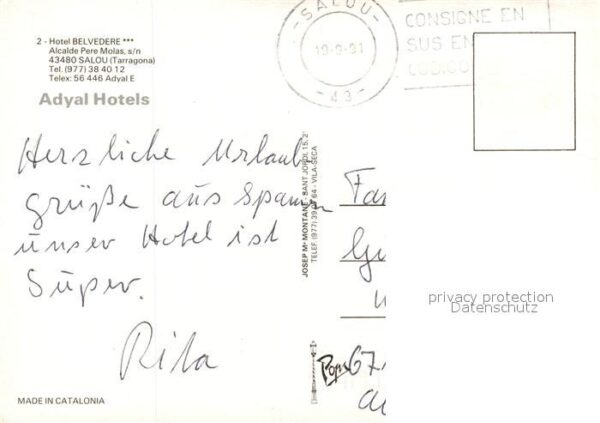 2 - Hotel BELVEDERE ***
Alcalde Pere Molas, s/n
43480 SALOU (Tarragona)
Tel. (977) 38 40 12
Telex: 56 446 Adyal E
Adyal Hotels
- SALOU -
19-9-91
- 43 -
CONSIGNE EN
SUS EN
CODIGO
Herzliche Urlaubs
grüße aus Spanien
unser Hotel ist
Super.
Rita
JOSEP Mª MONTAÑE - SANT JORDI, 15, 2
TELEF. (977) 39 64 - VILA-SECA
Fa
67
MADE IN CATALONIA
privacy protection
Datenschutz